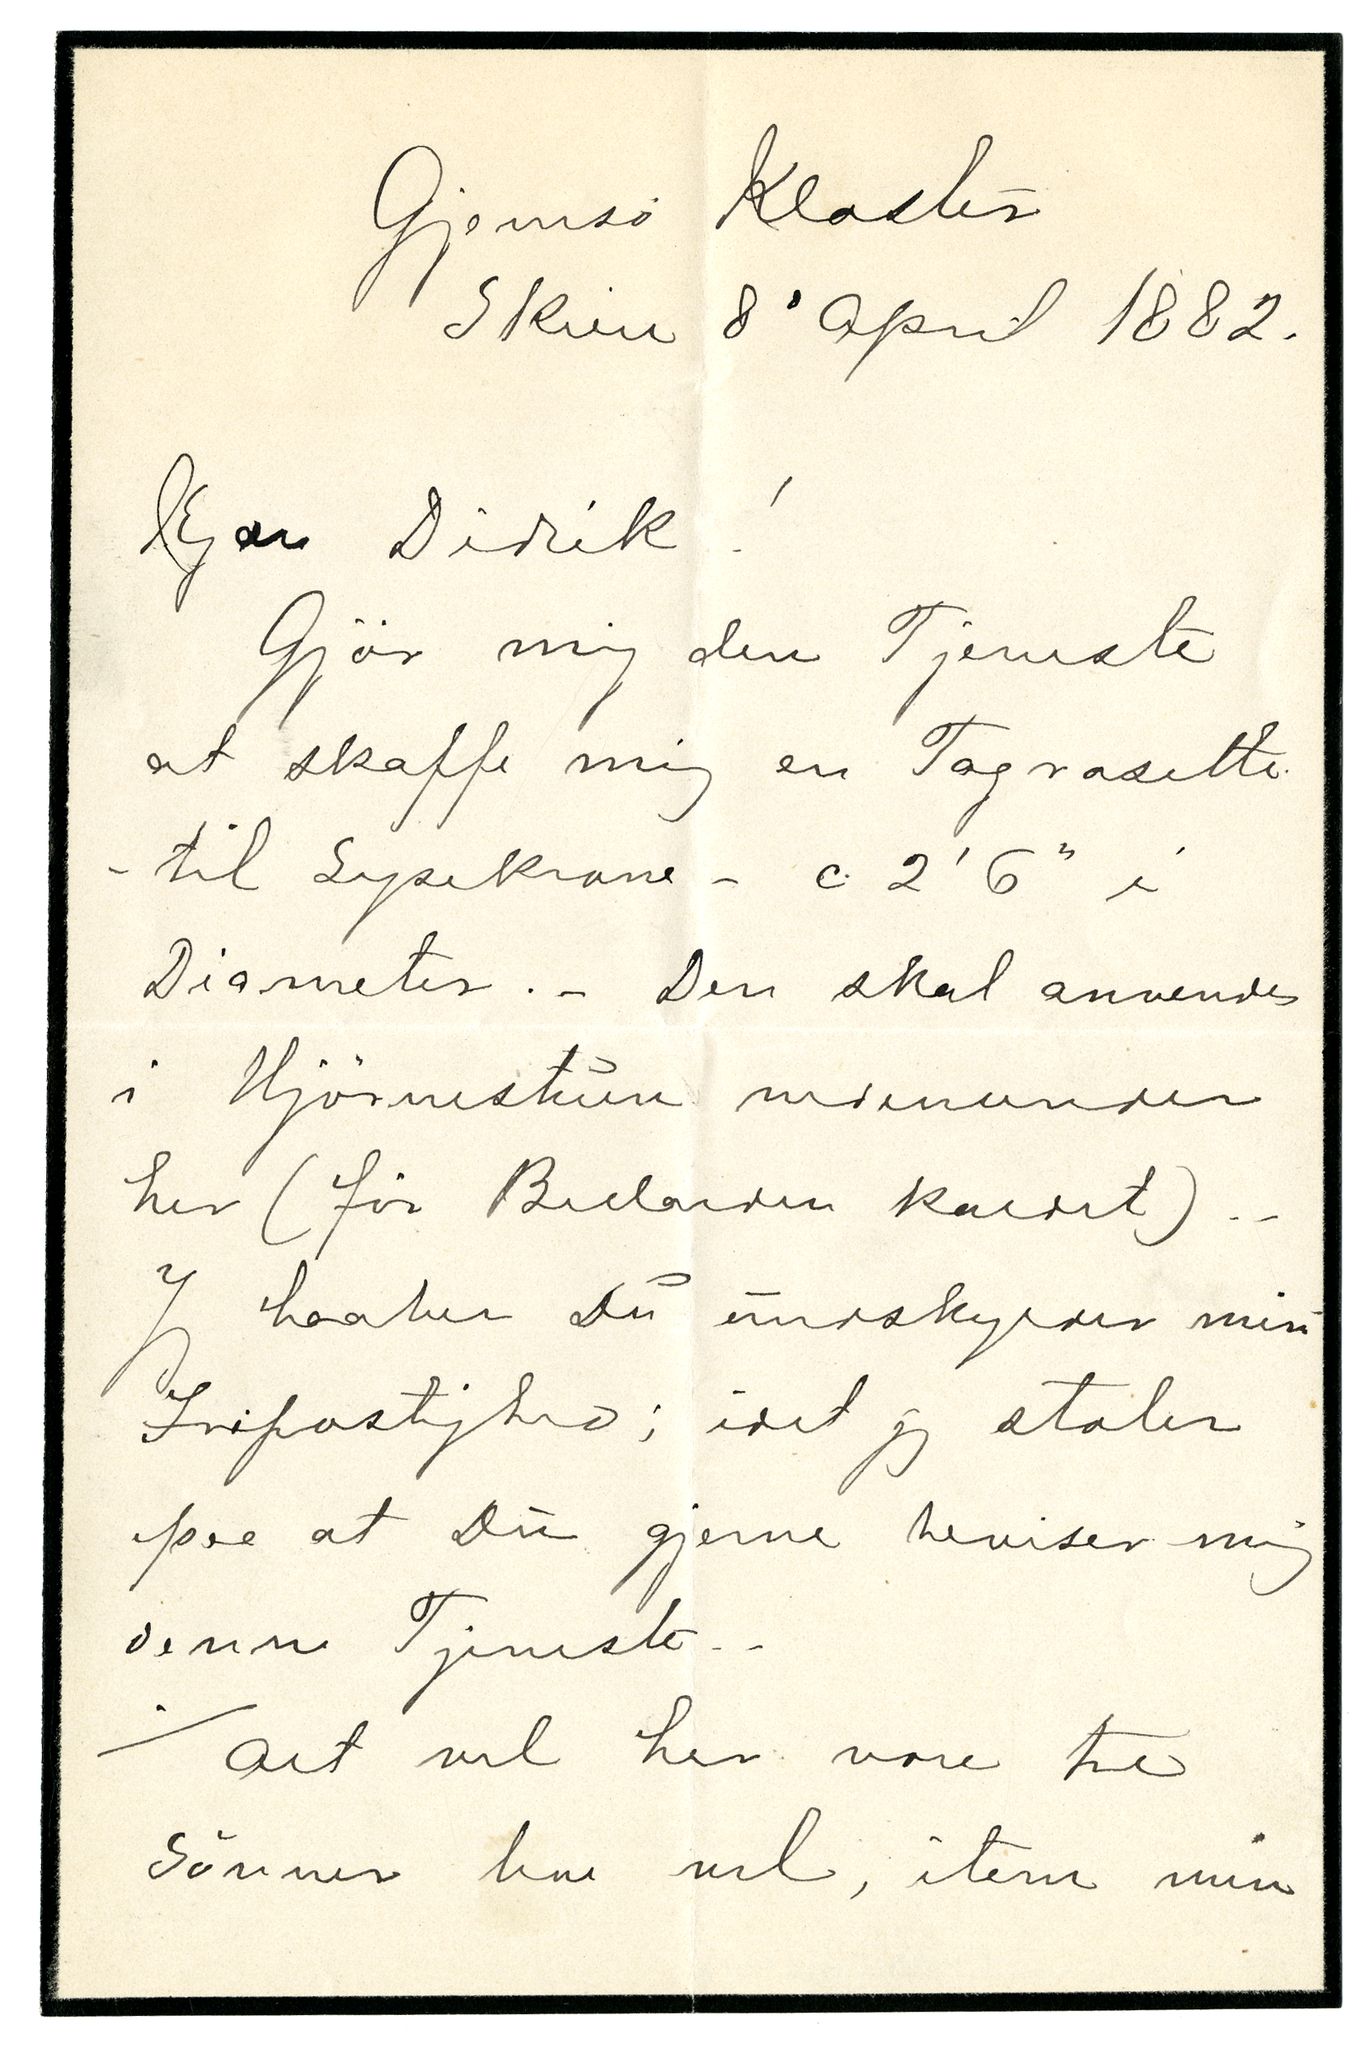 Gjemsö Kloster
Skien 8' April 1882.
Kjære Didrik!
Gjör mig den Tjeneste
at skaffe mig en Tagrosette
- til Lysekrone - c. 2' 6" i
Diameter. - Den skal anvendes
i Hjörnestuen nedenunder
her (för Billarden kaldet). -
Jg haaber Du undskylder min
Fripostighed; idet jg stoler
paa at Du gjerne beviser mig
denne Tjeneste. -
Alt vel her vore tre
Sönner har vel, item min